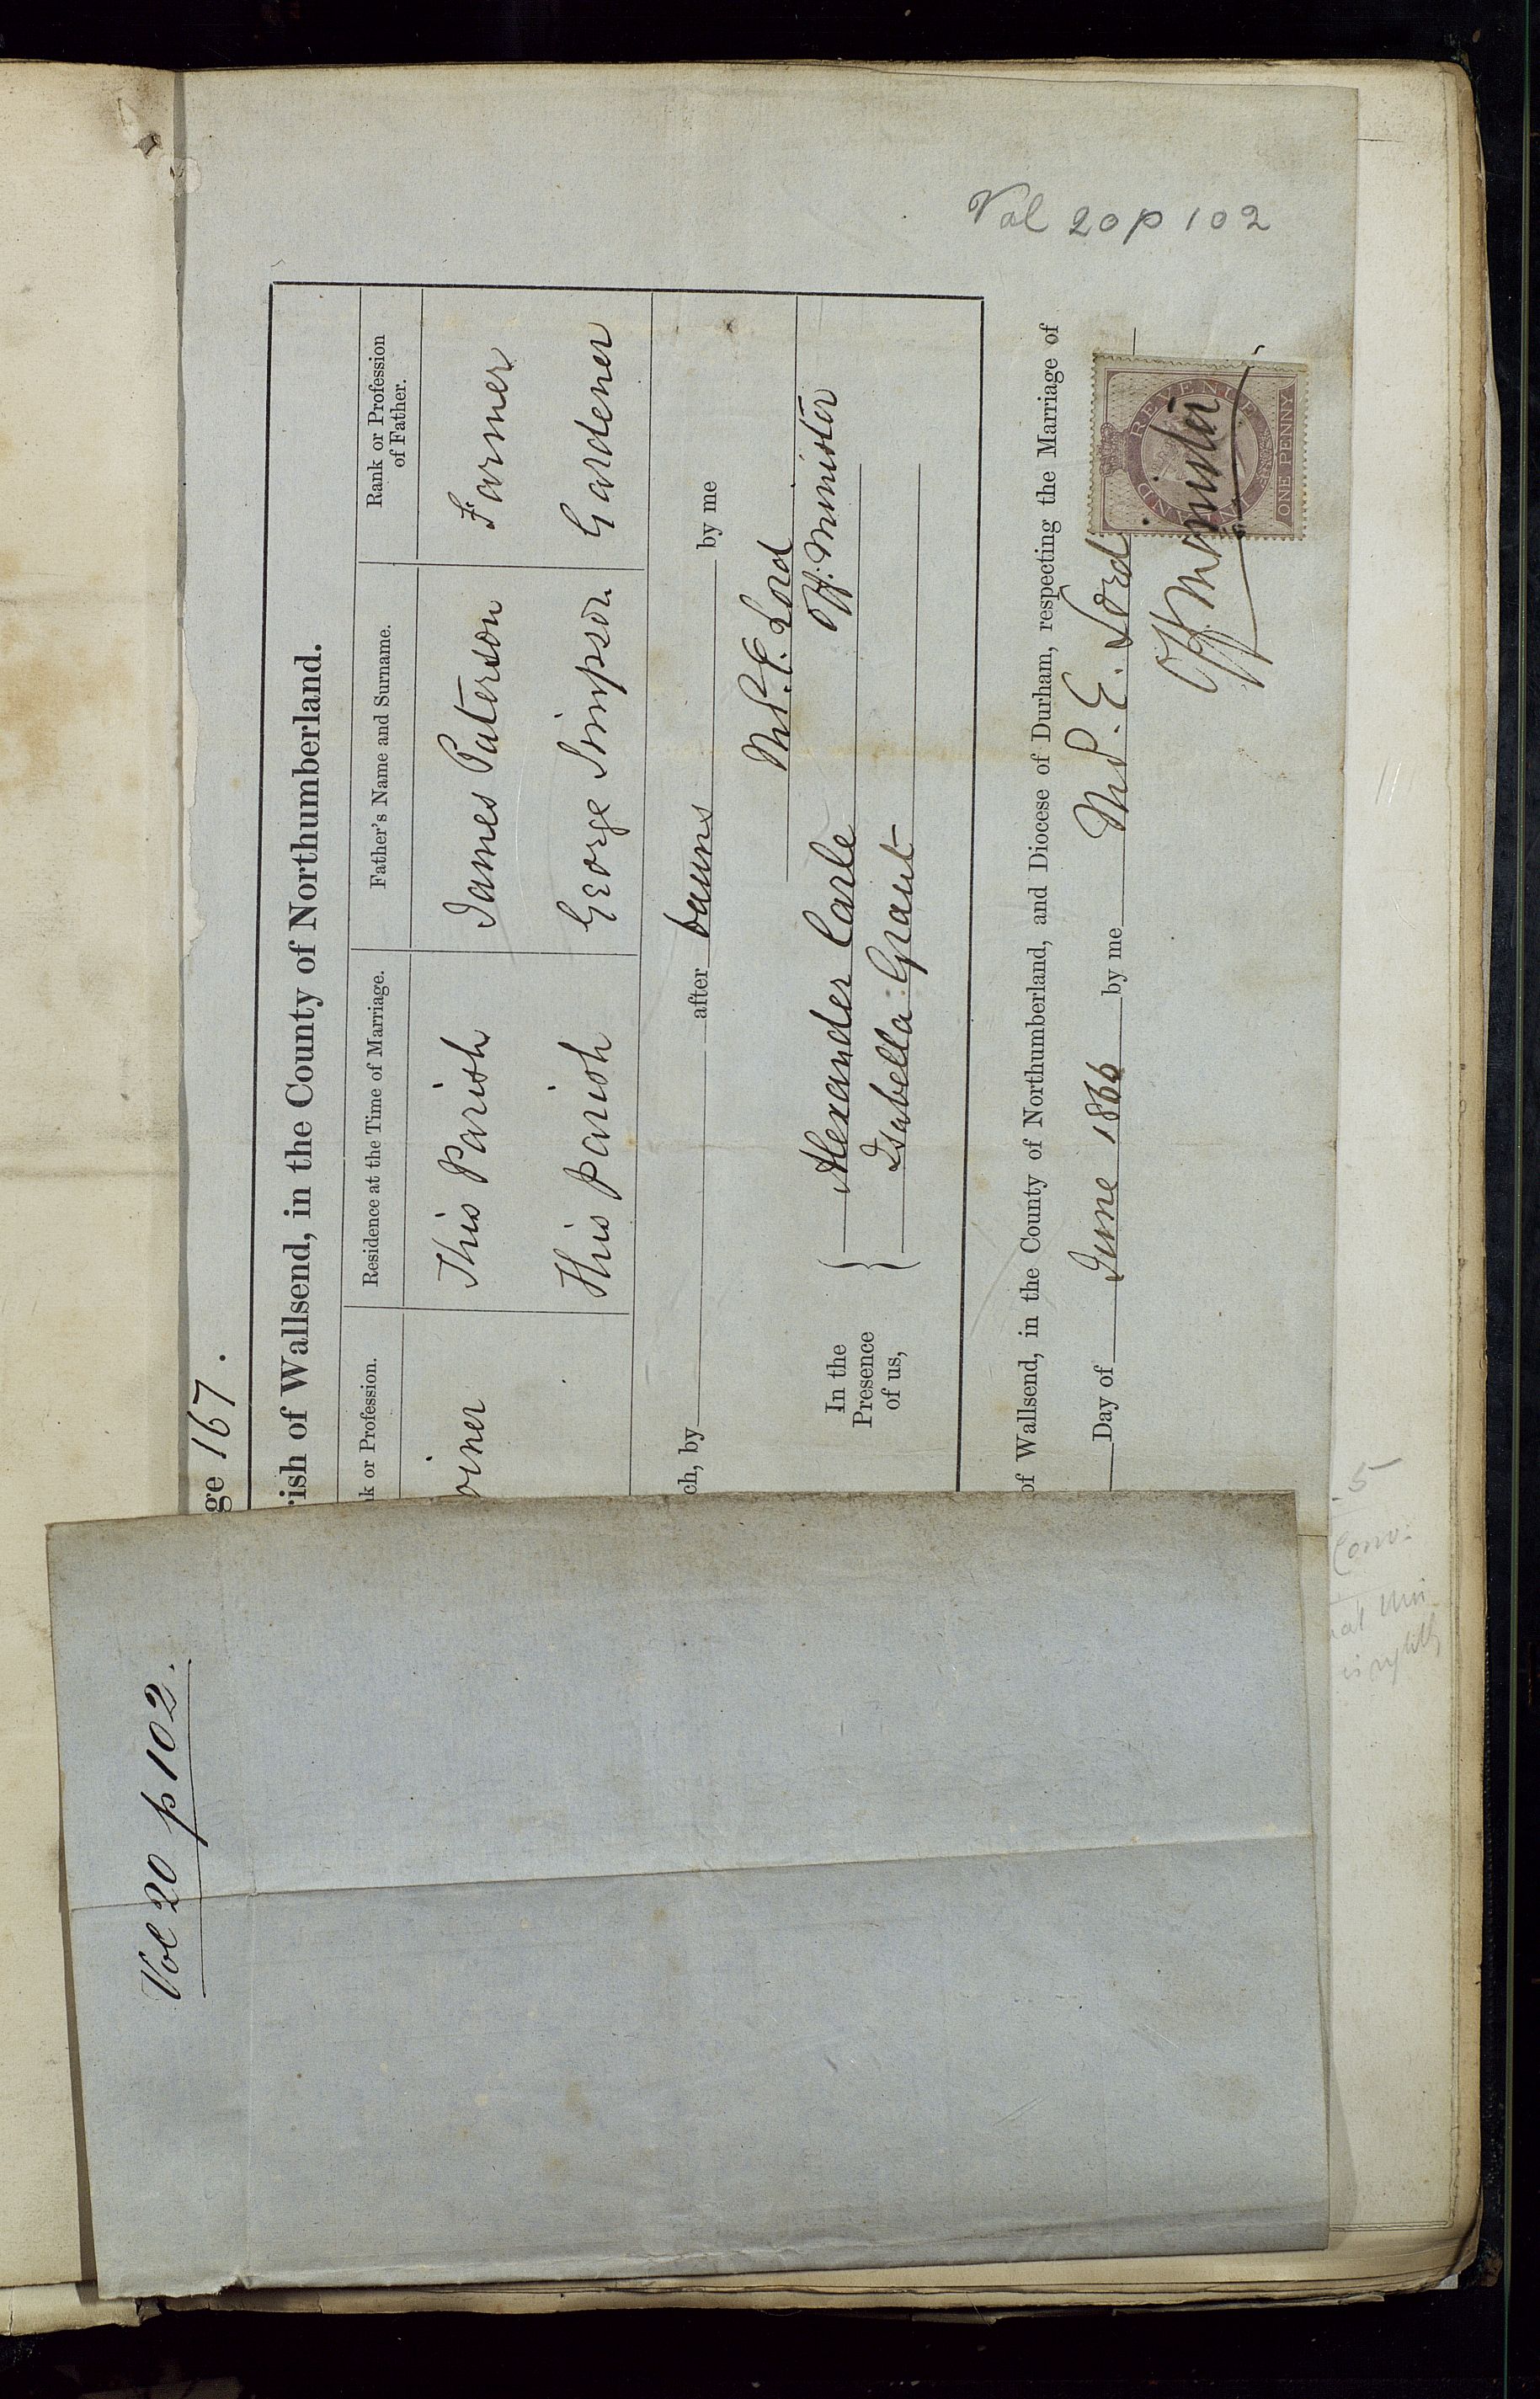 Vol 20 p 102.
Vol 20 p 102
ge 167.
rish of Wallsend, in the County of Northumberland.
k or Profession. Residence at the Time of Marriage. Father's Name and Surname. Rank or Profession of Father.
oiner This Parish James Paterson Farmer
This parish George Simpson Gardener
ch, by after banns by me
E. Lord
Off: Minister
In the
Presence
of us,
Alexander Carle
Isabella Grant
of Wallsend, in the County of Northumberland, and Diocese of Durham, respecting the Marriage of
Day of June 1866 by me E. Lord
Off Minister
INLAND REVENUE
ONE PENNY
5